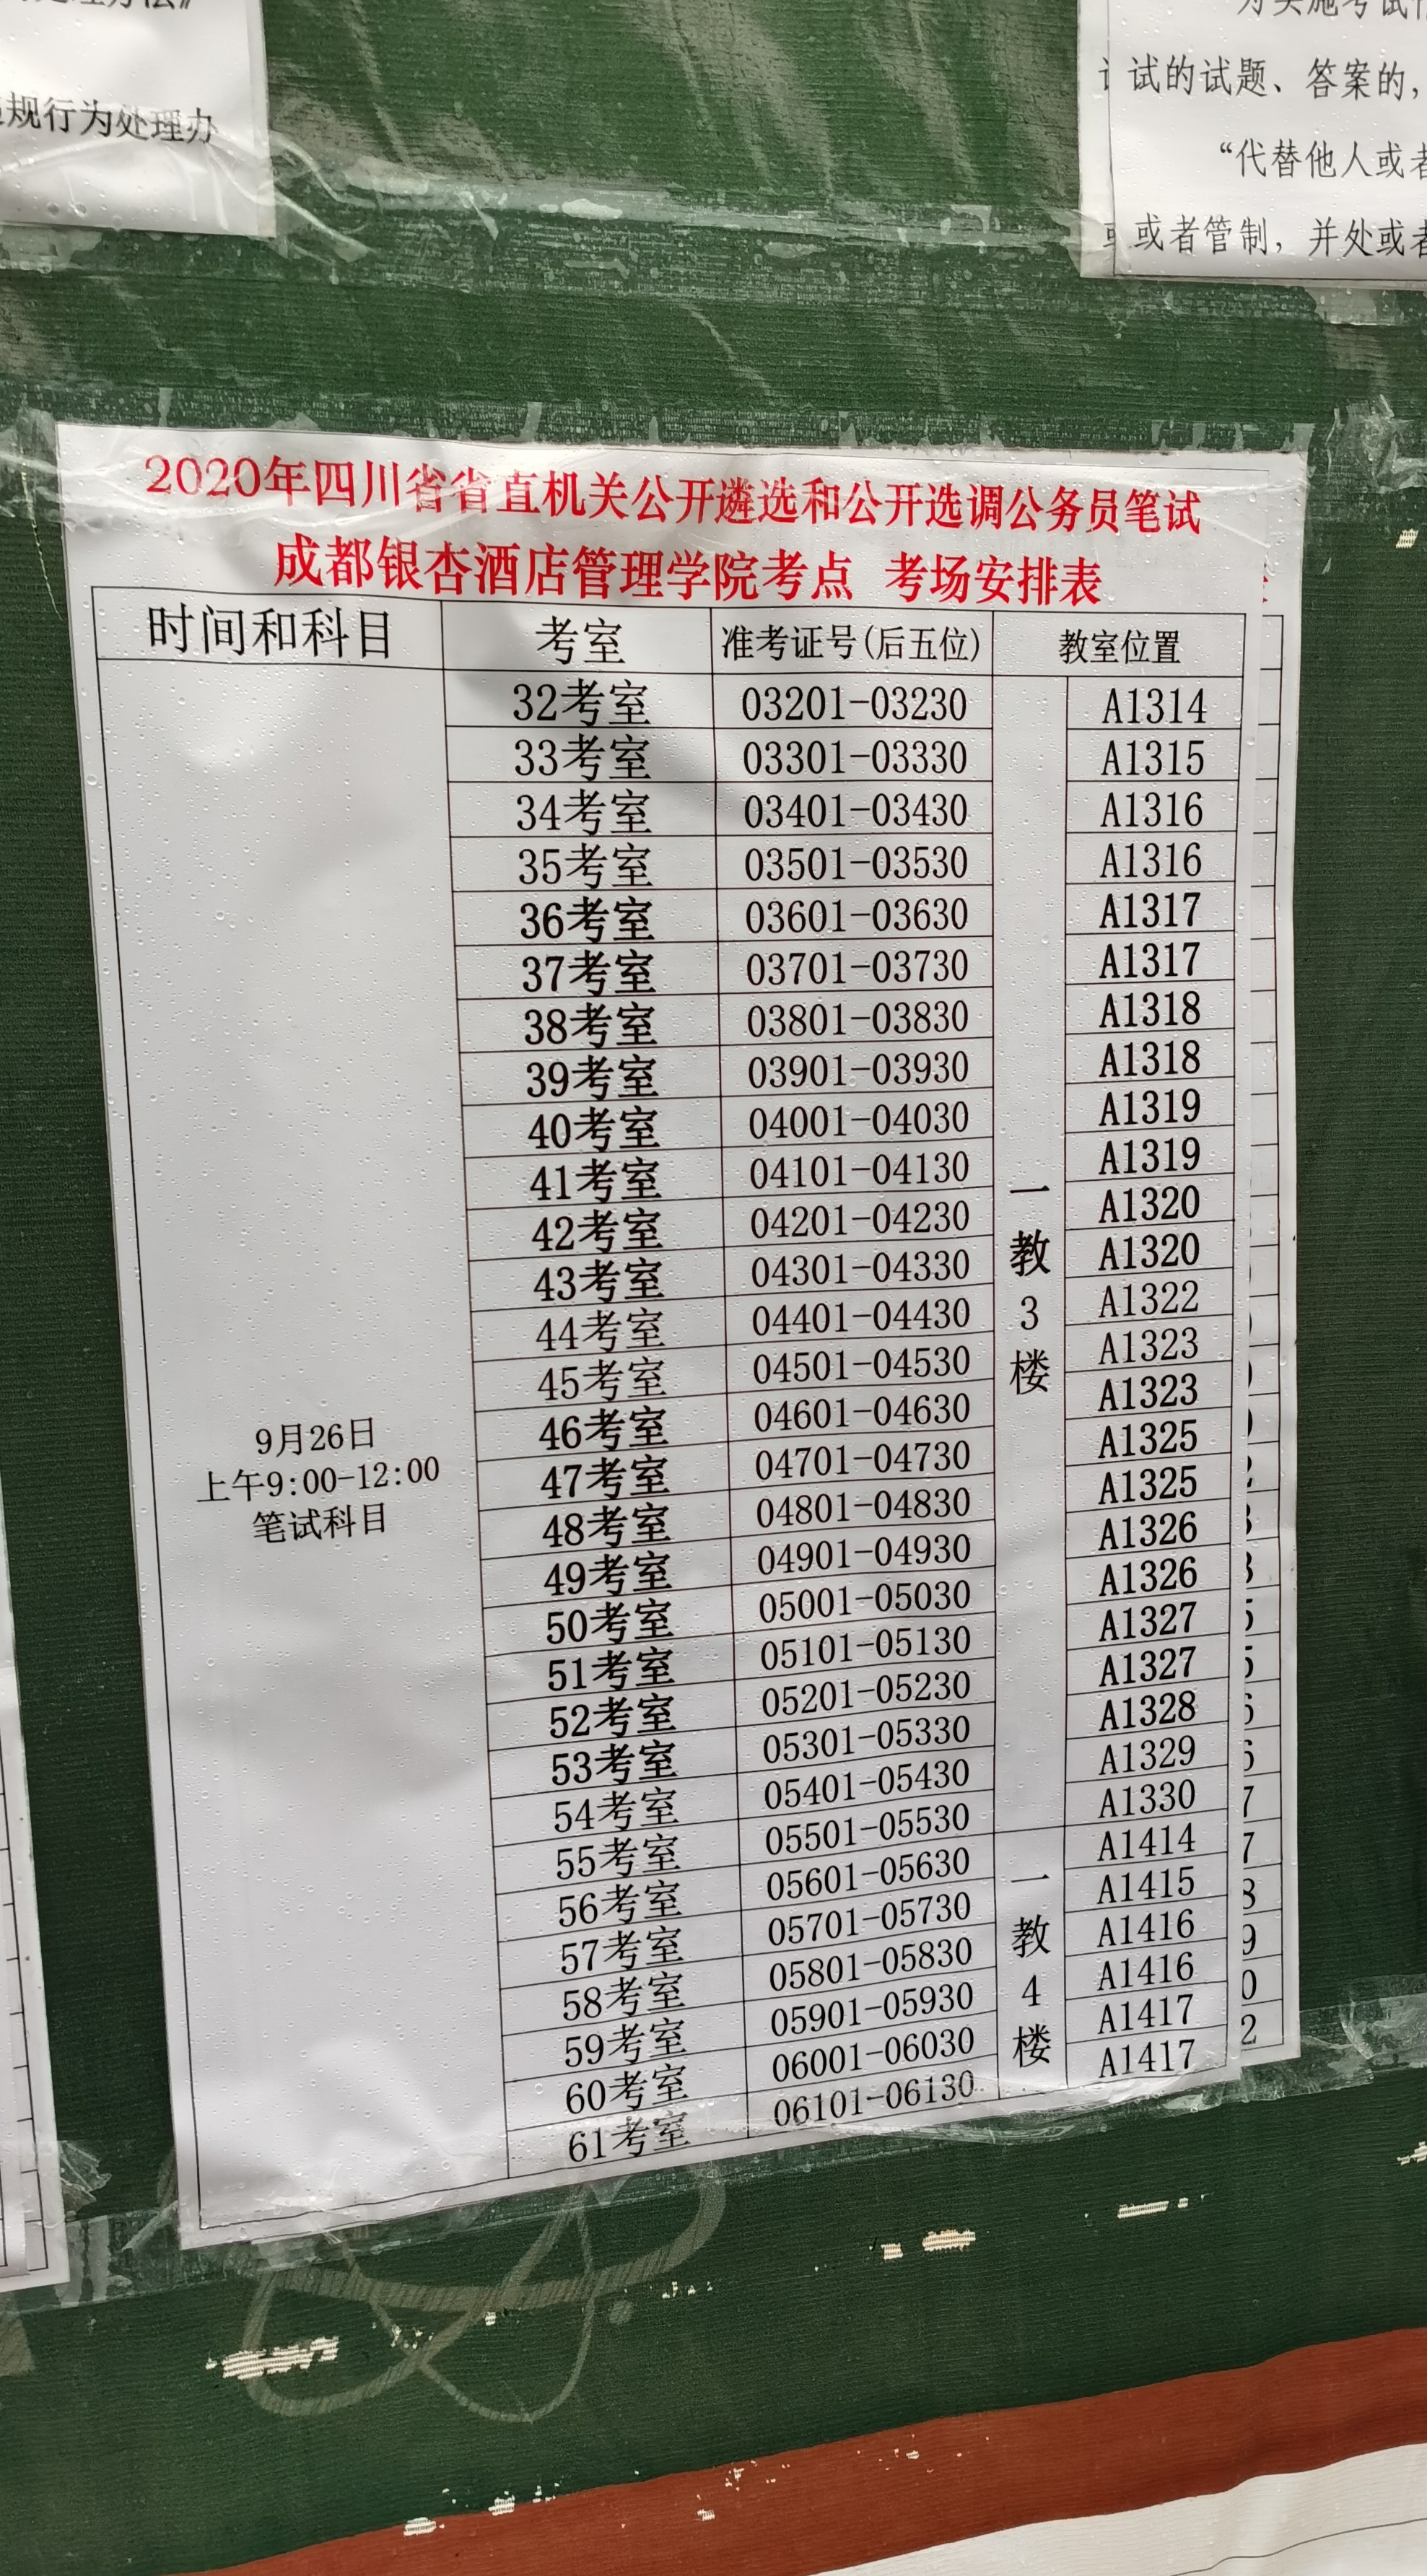 规行为处理办
试的试题、答案的，
“代替他人或者
或者管制，并处或者
2020年四川省省直机关公开遴选和公开选调公务员笔试
成都银杏酒店管理学院考点 考场安排表
时间和科目 考室 准考证号(后五位) 教室位置
32考室 03201-03230 A1314
33考室 03301-03330 A1315
34考室 03401-03430 A1316
35考室 03501-03530 A1316
36考室 03601-03630 A1317
37考室 03701-03730 A1317
38考室 03801-03830 A1318
39考室 03901-03930 A1318
40考室 04001-04030 A1319
41考室 04101-04130 A1319
42考室 04201-04230 A1320
43考室 04301-04330 A1320
44考室 04401-04430 A1322
45考室 04501-04530 A1323
46考室 04601-04630 A1323
47考室 04701-04730 A1325
48考室 04801-04830 A1325
49考室 04901-04930 A1326
50考室 05001-05030 A1326
51考室 05101-05130 A1327
52考室 05201-05230 A1327
53考室 05301-05330 A1328
54考室 05401-05430 A1329
55考室 05501-05530 A1330
56考室 05601-05630 A1414
57考室 05701-05730 A1415
58考室 05801-05830 A1416
59考室 05901-05930 A1416
60考室 06001-06030 A1417
61考室 06101-06130 A1417
一教3楼
一教4楼
9月26日
上午9:00-12:00
笔试科目